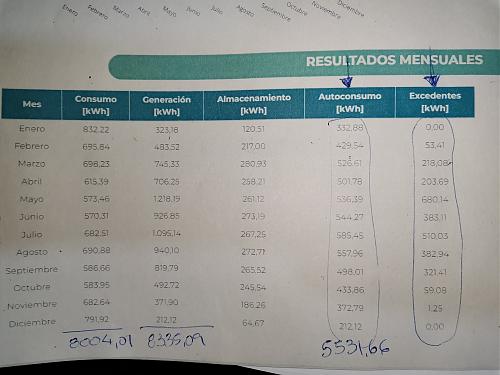 Enero Febrero Marzo Abril Mayo Junio Julio Agosto Septiembre Octubre Noviembre Diciembre
RESULTADOS MENSUALES
Mes Consumo [kWh] Generación [kWh] Almacenamiento [kWh] Autoconsumo [kWh] Excedentes [kWh]
Enero 832,22 323,18 120,51 332,88 0,00
Febrero 695,84 483,52 217,00 429,54 53,41
Marzo 698,23 745,33 280,93 526,61 218,08
Abril 615,39 706,25 258,21 501,78 203,69
Mayo 573,46 1.218,19 261,12 536,39 680,14
Junio 570,31 926,85 273,19 544,27 383,11
Julio 682,51 1.095,14 267,25 585,45 510,03
Agosto 690,88 940,10 272,71 557,96 382,94
Septiembre 586,66 819,79 265,52 498,01 321,41
Octubre 583,95 492,72 245,54 433,86 59,08
Noviembre 682,64 371,90 186,26 372,79 1,25
Diciembre 791,92 212,12 64,67 212,12 0,00
8004,01 8335,09 5531,66